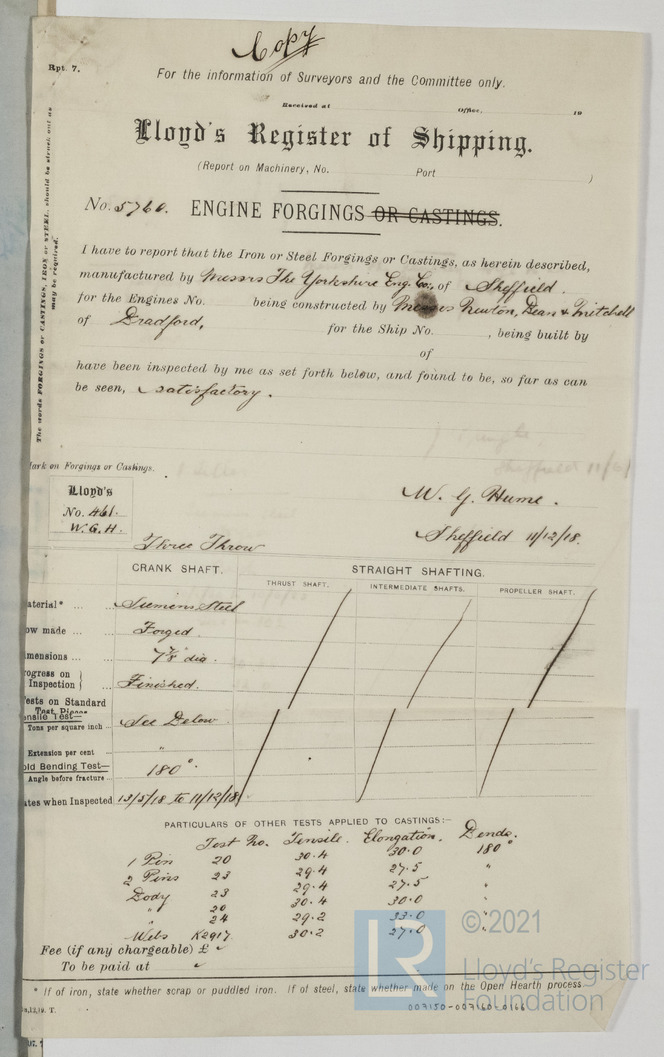 Copy
Rpt. 7.
For the information of Surveyors and the Committee only.
Received at Office, 19
Lloyd's Register of Shipping.
(Report on Machinery, No. Port )
No. 5760. ENGINE FORGINGS OR CASTINGS.
The words FORGINGS or CASTINGS, IRON or STEEL, should be struck out as may be required.
I have to report that the Iron or Steel Forgings or Castings, as herein described,
manufactured by Messrs The Yorkshire Eng. Co., of Sheffield.
for the Engines No. being constructed by Messrs Newton, Bean & Mitchell
of Bradford, for the Ship No. , being built by
of
have been inspected by me as set forth below, and found to be, so far as can
be seen, satisfactory.
ark on Forgings or Castings.
Lloyd's
No. 461.
W.G.H.
W. G. Hume.
Sheffield 11/12/18.
Three Throw
CRANK SHAFT. STRAIGHT SHAFTING.
THRUST SHAFT. INTERMEDIATE SHAFTS. PROPELLER SHAFT.
aterial* ... ... Siemens Steel
ow made ... Forged.
imensions ... ... 7⅞" dia.
rogress on
Inspection } ... Finished.
ests on Standard
Test Pieces
ensile Test— See Below.
Tons per square inch ...
Extension per cent "
old Bending Test— 180°.
Angle before fracture ...
ates when Inspected 13/5/18 to 11/12/18
PARTICULARS OF OTHER TESTS APPLIED TO CASTINGS:—
Test No. Tensile. Elongation. Bends.
1 Pin 20 30.4 30.0 180°
2 Pins 23 29.4 27.5 "
Body 23 29.4 27.5 "
" 20 30.4 30.0 "
" 24 29.2 33.0 "
Webs K2917. 30.2 27.0 "
Fee (if any chargeable) £
To be paid at
* If of iron, state whether scrap or puddled iron. If of steel, state whether made on the Open Hearth process
LR
© 2021
Lloyd's Register
Foundation
003150-003160-0166